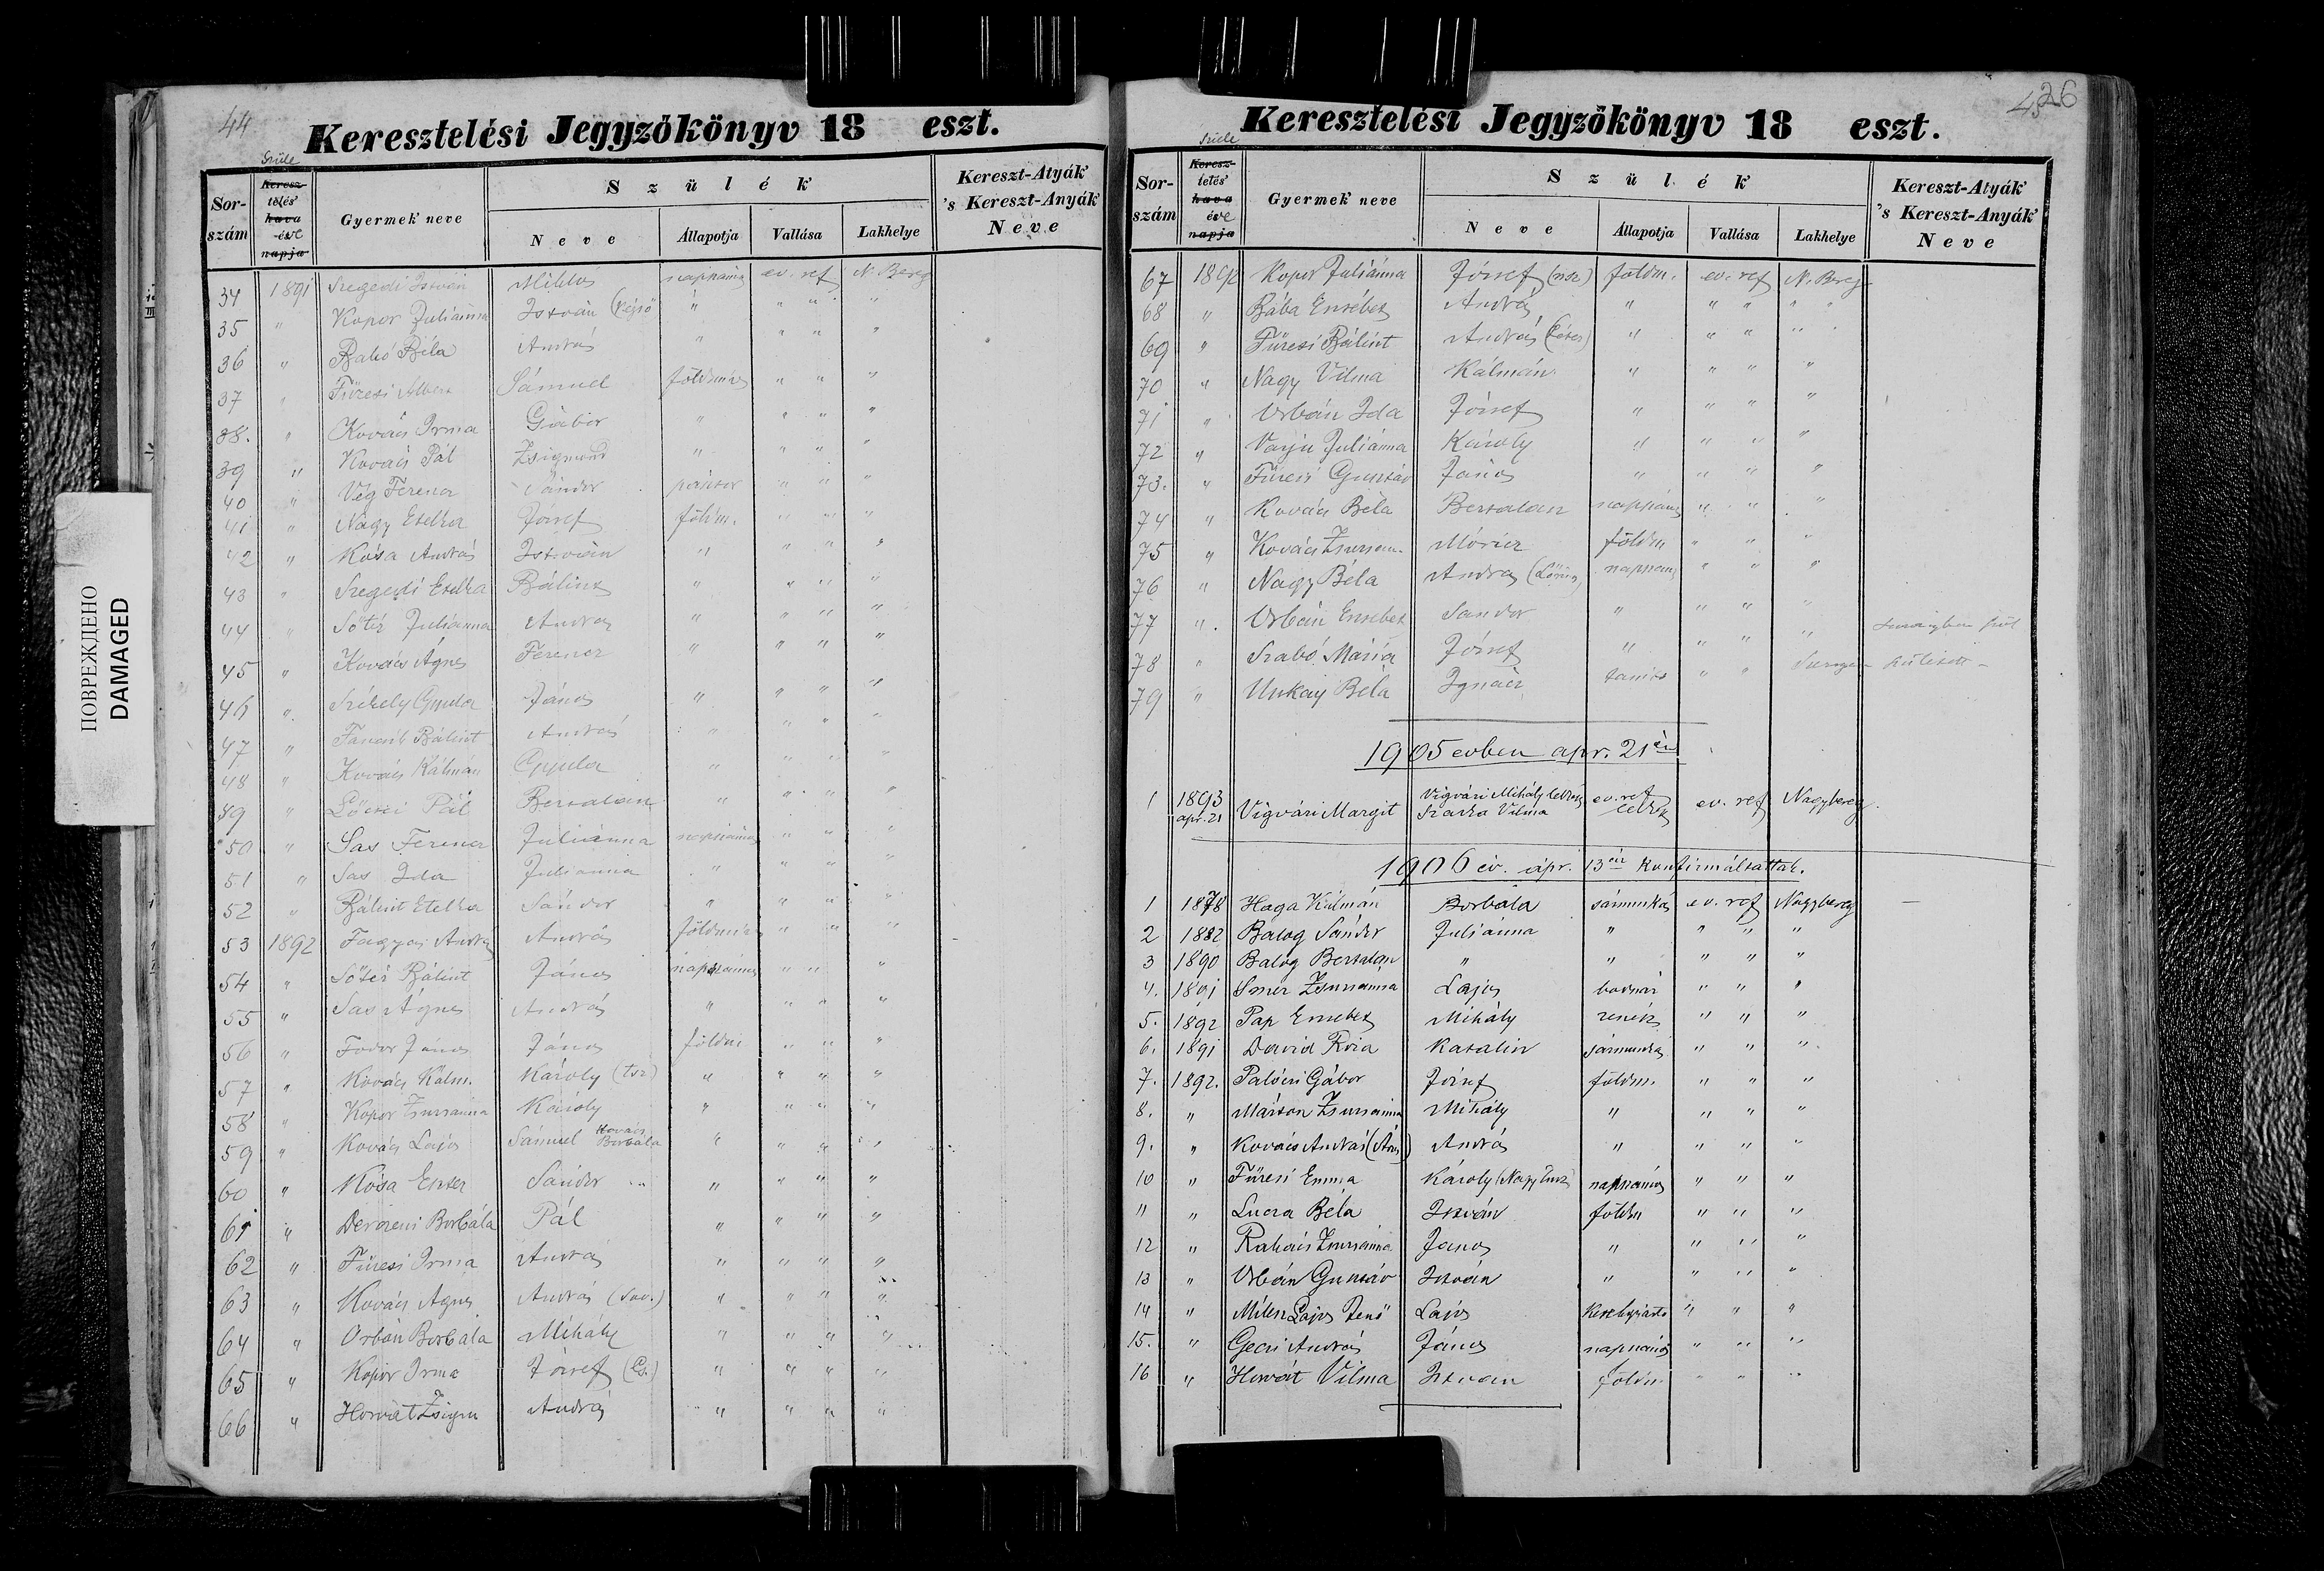 ПОВРЕЖДЕНО
DAMAGED
44
Keresztelési Jegyzőkönyv 18 eszt.
Sor-szám
Szüle
Keresz-
telés'
hava
éve
napja
Gyermek' neve
Szülék'
Neve
Állapotja
Vallása
Lakhelye
Kereszt-Atyák
's Kereszt-Anyák
Neve
34 1891 Szegedi István Miklós napszámos ev. ref N. Bereg
35 " Kopor Juliánna István " " " "
36 " Bakó Béla András " " " "
37 " Füzesi Albert Sámuel földmives " " "
38. " Kovács Irma Gábor " " " "
39 " Kovács Pál Zsigmond " " " "
40 " Vég Ferencz Sándor pásztor " " "
41 " Nagy Etelka József földm. " " "
42 " Kósa András István " " " "
43 " Szegedi Etelka Bálint " " " "
44 " Sőtér Juliánna András " " " "
45 " Kovács Ágnes Ferencz " " " "
46 " Székely Gyula János " " " "
47 " Bálint András " " " "
48 " Kovács Kálmán Gyula " " " "
49 " Lőcsei Pál Bertalan " " " "
50 " Sas Ferencz Juliánna napszámos " " "
51 " Sas Ida Julianna " " " "
52 " Bálint Etelka Sándor " " " "
53 1892 Fagyas András András földmives " " "
54 " Sőtér Bálint János napszámos " " "
55 " Sas Ágnes András " " " "
56 " Fodor János János földm " " "
57 " Kovács Kálm. Károly " " " "
58 " Kopor Zsuzsanna Károly " " " "
59 " Kovács Lajos Sámuel Kovács Borbála " " " "
60 " Kósa Eszter Sándor " " " "
61 " Derczeni Borbála Pál " " " "
62 " Füzesi Irma András " " " "
63 " Kovács Ágnes András " " " "
64 " Orbán Borbála Mihály " " " "
65 " Kopor Irma József " " " "
66 " Horvát Zsigm András " " " "
26
45
Keresztelési Jegyzőkönyv 18 eszt.
Sor-szám
Szüle
Keresz-
telés'
hava
éve
napja
Gyermek' neve
Szülék'
Neve
Állapotja
Vallása
Lakhelye
Kereszt-Atyák
's Kereszt-Anyák
Neve
67 1892 Kopor Juliánna József földm. ev. ref N. Bereg
68 " Bába Erzsébet András " " " " "
69 " Füzesi Bálint András " " " "
70 " Nagy Vilma Kálmán " " " "
71 " Urbán Ida József " " " "
72 " Varju Juliánna Károly " " " "
73. " Füzesi Gusztáv János " " " "
74 " Kovács Béla Bertalan napszámos " " "
75 " Kovács Zsuzsan. Móricz földm " " "
76 " Nagy Béla András (Lőrincz) napszám " " "
77 " Urbán Erzsébet Sandor " " " "
78 " Szabó Mária József " " " "
79 " Unkay Béla Ignácz tanító " "
1905 évben apr. 21én
1 1893 apr. 21 Vigvári Margit Vigvári Mihály lelkész Szarka Vilma ev. ref lelkész ev. ref Nagybereg.
1906 év. ápr. 13án Konfirmáltattak.
1 1878 Haga Kálmán Borbála ev. ref Nagybereg —
2 1882 Balog Sándor Juliánna " " " "
3 1890 Balog Bertalan " " " " "
4. 1891 Zsuzsanna Lajos bodnár " " "
5. 1892 Pap Erzsébet Mihály zenész " " "
6. 1891 David Katalin " " "
7. 1892. Palóczi Gábor József földm. " " "
8. " Márton Zsuzsanna Mihály " " " "
9. " Kovács András András " " " "
10 " Füzesi Emma Károly napszámos " " "
11 " Lucza Béla István földm " " "
12 " Zsuzsanna Janos " " " "
13 " Urbán Gusztáv István " " " "
14 " Lajos Jenő Lajos " " "
15. " Geczi András János napszámos " " "
16 " Horvát Vilma Istvan földm " " "